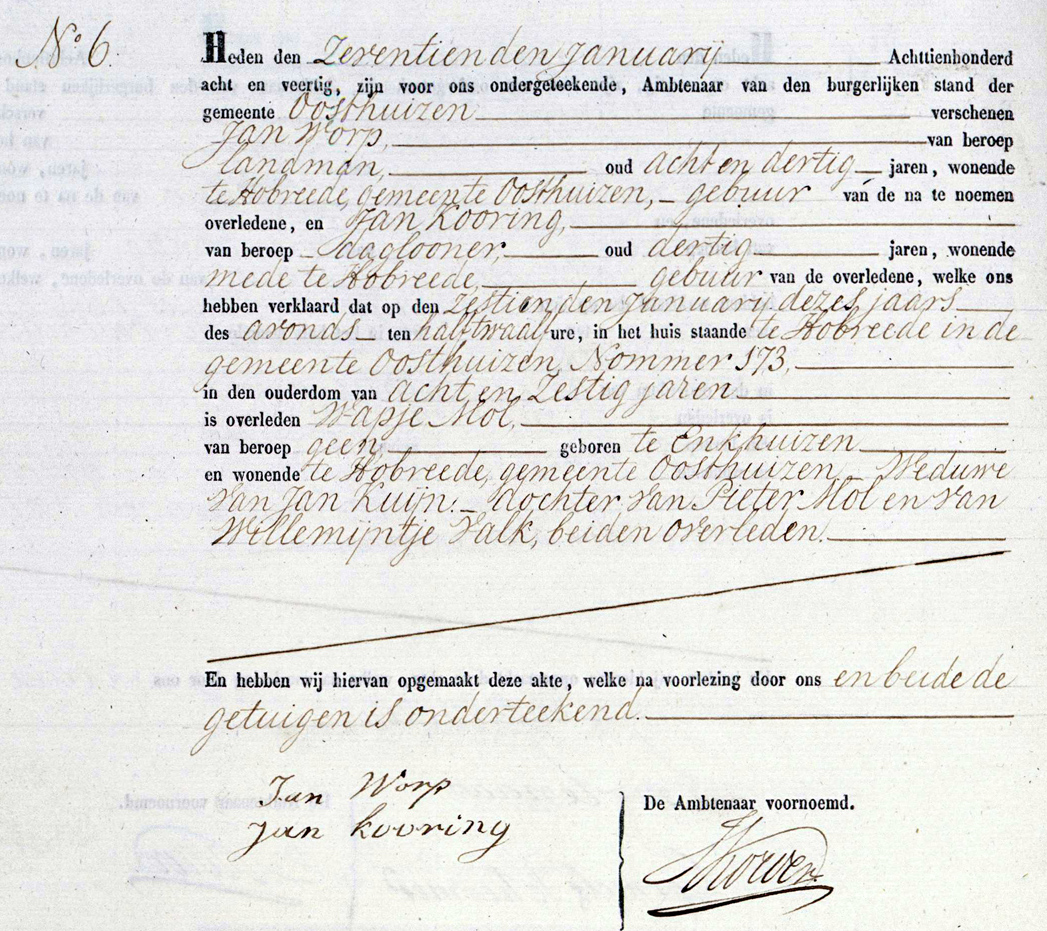 No 6.
Heden den Zeventienden januarij Achttienhonderd
acht en veertig, zijn voor ons ondergeteekende, Ambtenaar van den burgerlijken stand der
gemeente Oosthuizen verschenen
Jan Worp, van beroep
landman, oud acht en dertig jaren, wonende
te Hobreede, gemeente Oosthuizen, gebuur van de na te noemen
overledene, en Jan Kooring,
van beroep daglooner, oud dertig jaren, wonende
mede te Hobreede, gebuur van de overledene, welke ons
hebben verklaard dat op den zestienden januarij dezes jaars
des avonds ten half twaalf ure, in het huis staande te Hobreede in de
gemeente Oosthuizen, Nommer 173,
in den ouderdom van acht en Zestig jaren
is overleden Wapje Mol,
van beroep geen, geboren te Enkhuizen
en wonende te Hobreede, gemeente Oosthuizen Weduwe
van Jan Kuijn. dochter van Pieter Mol en van
Willemijntje Valk, beiden overleden.
En hebben wij hiervan opgemaakt deze akte, welke na voorlezing door ons en beide de
getuigen is onderteekend.
Jan Worp
De Ambtenaar voornoemd.
jan kooring